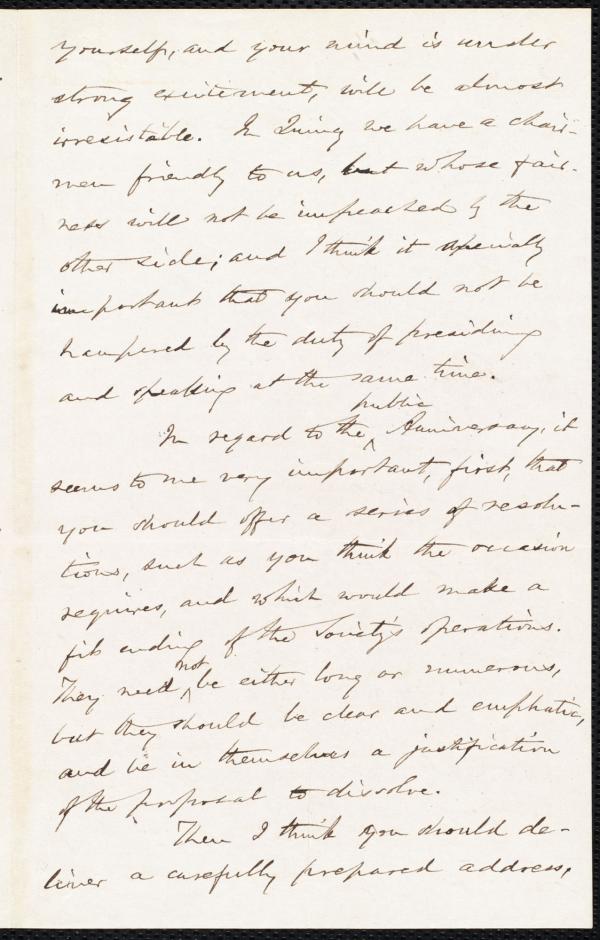 yourself, and your mind is under
strong excitement, will be almost
irresistable. In Quincy we have a chair-
man friendly to us, but whose fair-
ness will not be impeached by the
other side; and I think it specially
important that you should not be
hampered by the duty of presiding
and speaking at the same time.
In regard to the public Anniversary, it
seems to me very important, first, that
you should offer a series of resolu-
tions, such as you think the occasion
requires, and which would make a
fit ending of the Society's operations.
They need not be either long or numerous,
but they should be clear and emphatic,
and be in themselves a justification
of the proposal to dissolve.
Then I think you should de-
liver a carefully prepared address,